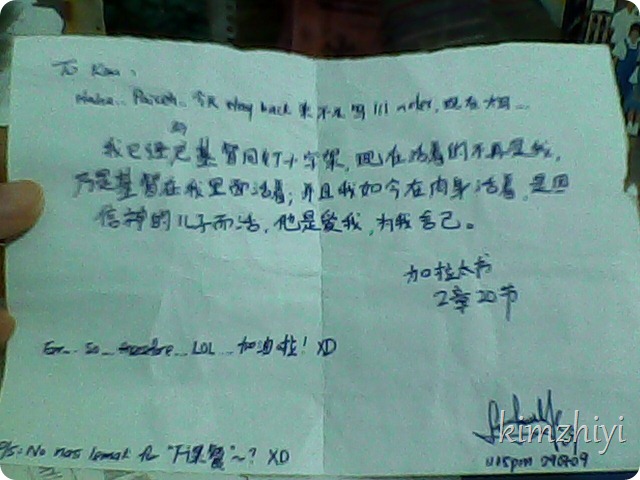 To Kim,
Haha.. Paiseh.. 今天 play back 来不及写 111 notes, 现在才写...
我已经与基督同钉十字架, 现在活着的不再是我,
乃是基督在我里面活着; 并且我如今在肉身活着, 是因
信神的儿子而活, 他是爱我, 为我舍己。
加拉太书
2章20节
Err... So... therefore... LOL... 加油啦! XD
P/S: No nas lemak for "下课餐"~? XD
kimzhiyi